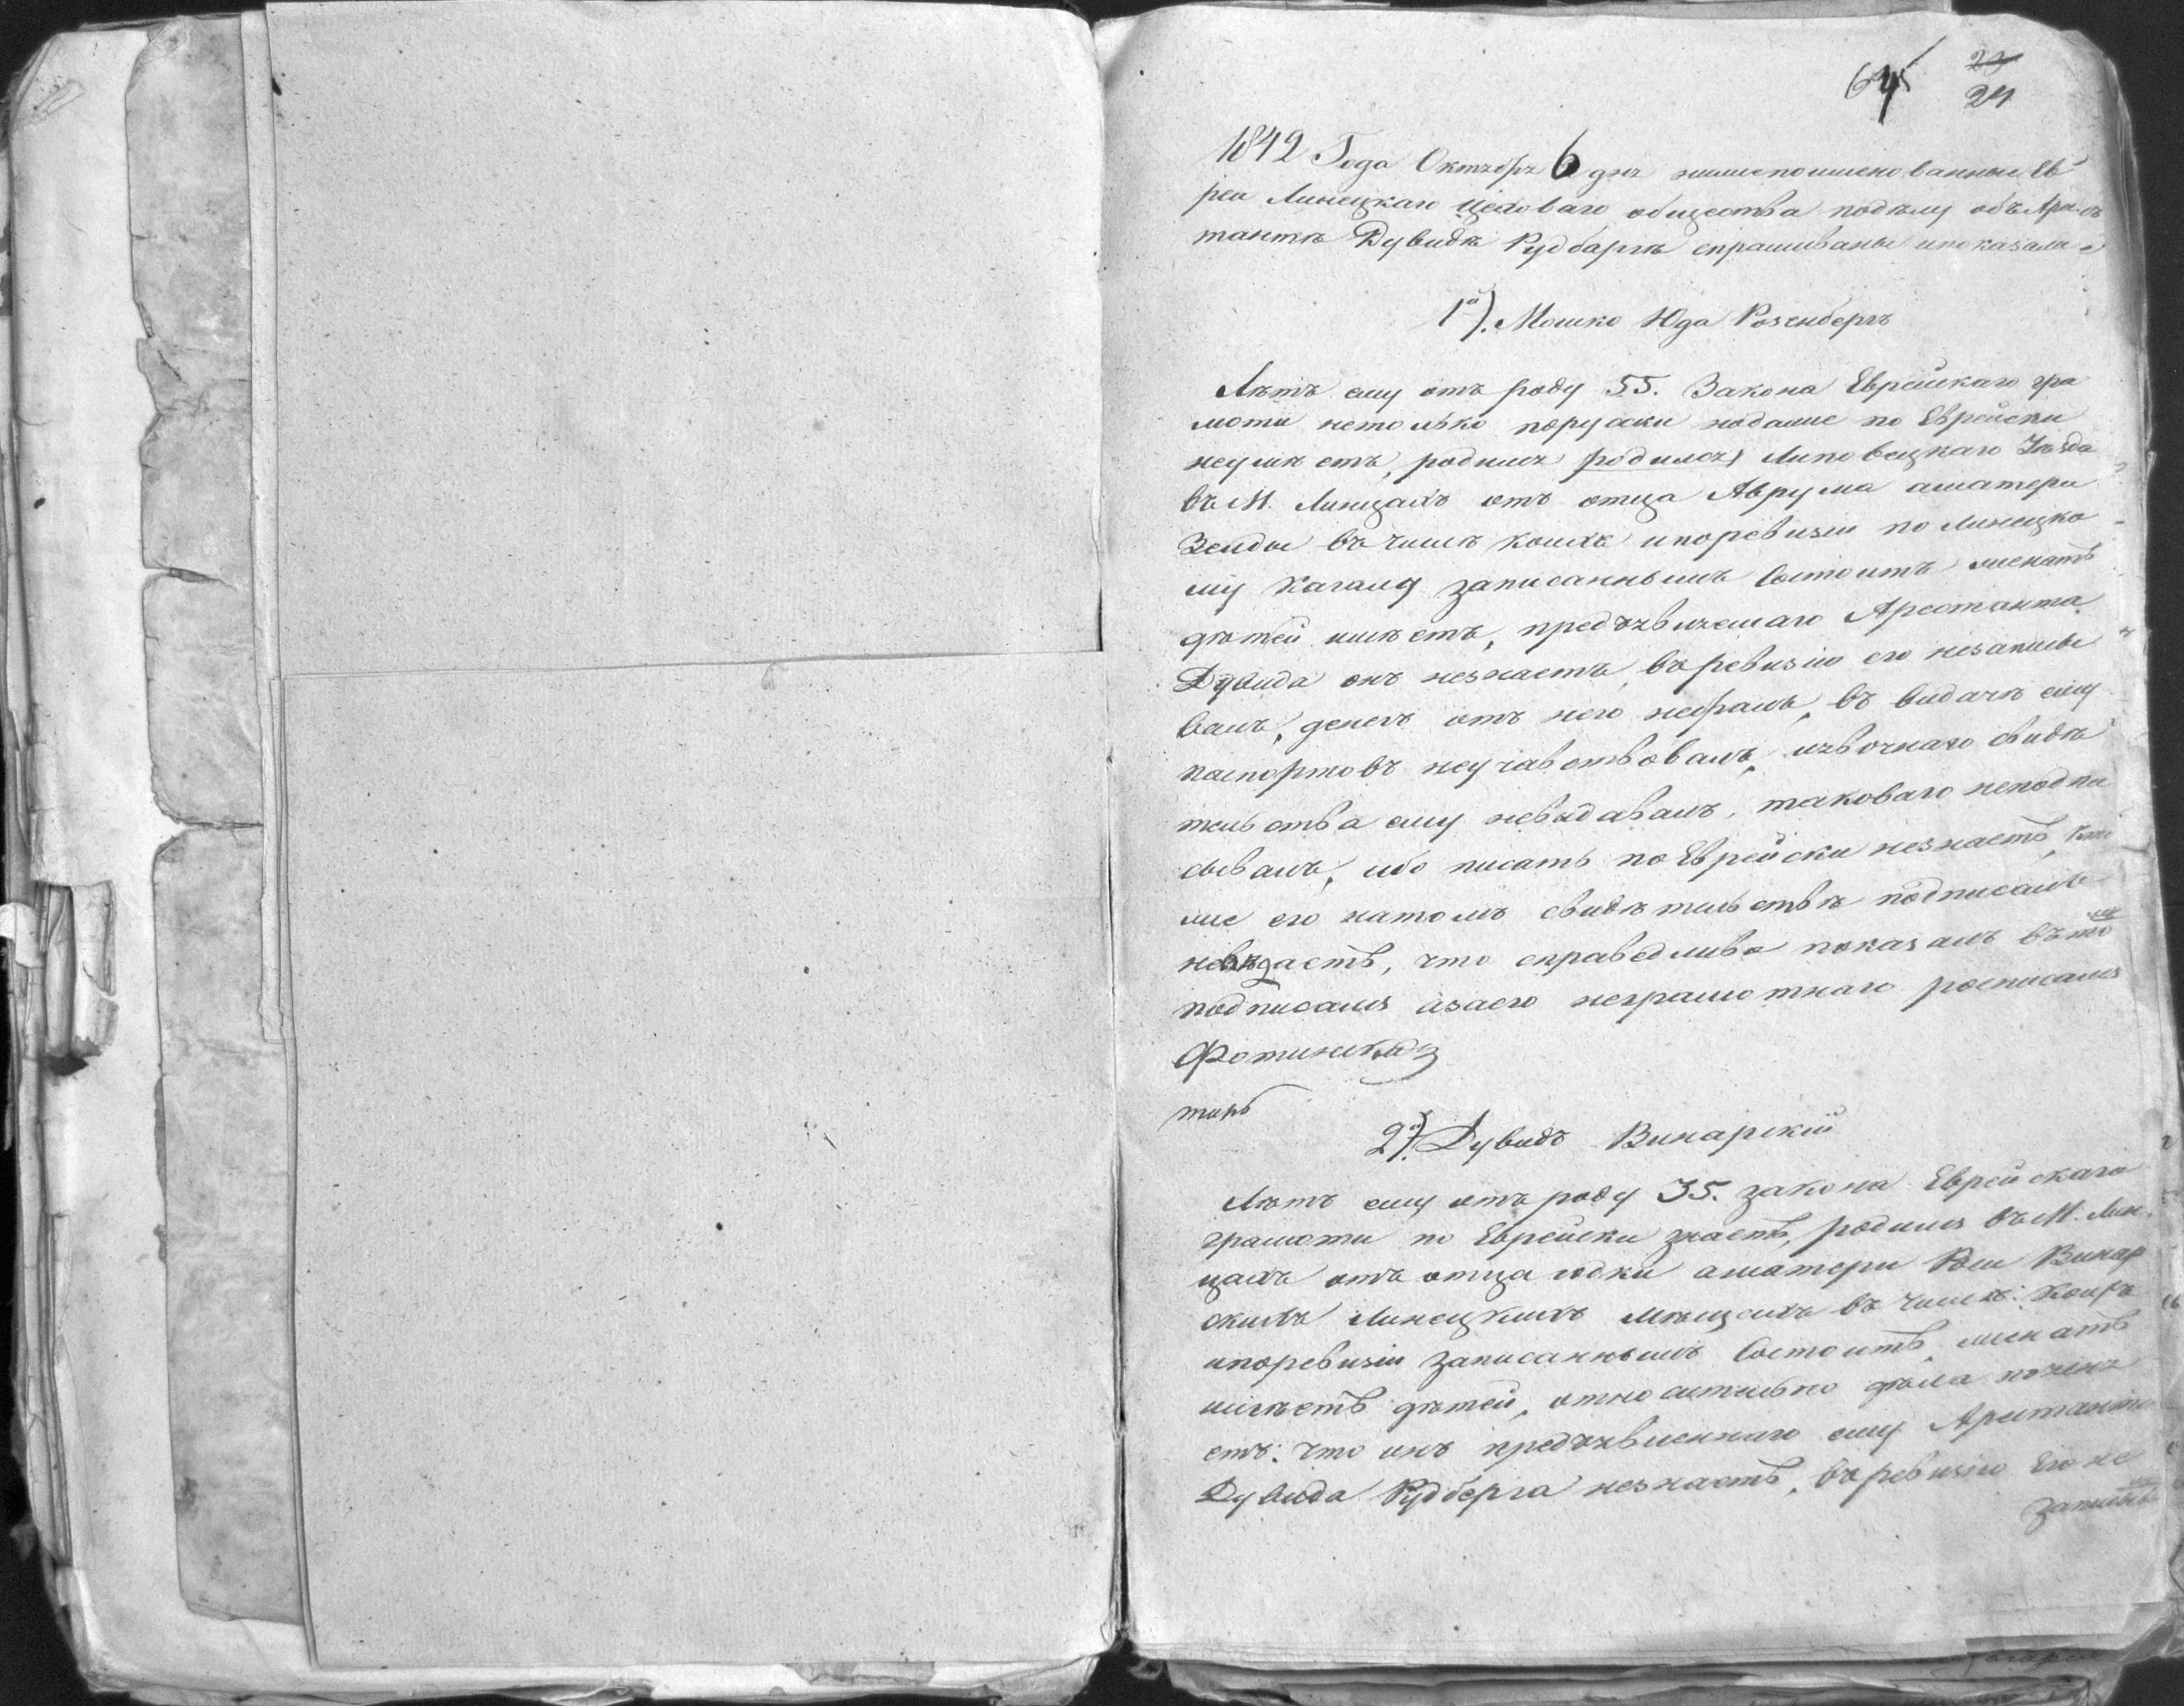 23
24
1842 Года Октября 6 дня нижепоименованные Ев
реи Линецкаго цеховаго общества подѣлу объ Арес
тантѣ Дувидѣ Рудбергѣ спрашиваны ипоказали
1й). Мошко Юда Розенбергъ
Лѣтъ ему отъ роду 55. Закона Еврейскаго гра
моти нетолько поруски нодаже по Еврейски
неумѣетъ, родился Липовецкаго Уѣзда
въ М. Линцахъ отъ отца Аврума аматери
Зейды въ числѣ коихъ ипоревизіи по Линецко
му Кагалу записаннымъ Состоитъ женатъ
дѣтей имѣетъ, предъявляемаго Арестанта
Дувида онъ незнаетъ, въ ревизію его незаписы
валъ, денегъ отъ него небралъ, въ видачѣ ему
паспортовъ неучавствовалъ, свидѣ
тельства ему невыдавалъ, таковаго неподпи
сывалъ, ибо писать по Еврейски незнаетъ, кто
же его натомъ свидѣтельствѣ подписалъ
невѣдаетъ, что справедливо показалъ въ томъ
подписался азаего неграмотнаго росписался
2й). Дувидъ Винарскій
Лѣтъ ему отъ роду 35. закона Еврейскаго
грамоти по Еврейски знаетъ, родился въ М. Лин
цахъ отъ отца Юдки аматери Винар
скихъ Линецкихъ Мѣщанъ въ числѣ коихъ
ипоревизіи записаннымъ Состоитъ, женатъ
имѣетъ дѣтей, относительно дѣла
етъ: что онъ предъявленнаго ему Арестанта
Дувида Рудберга незнаетъ, въ ревизію Его не
записы